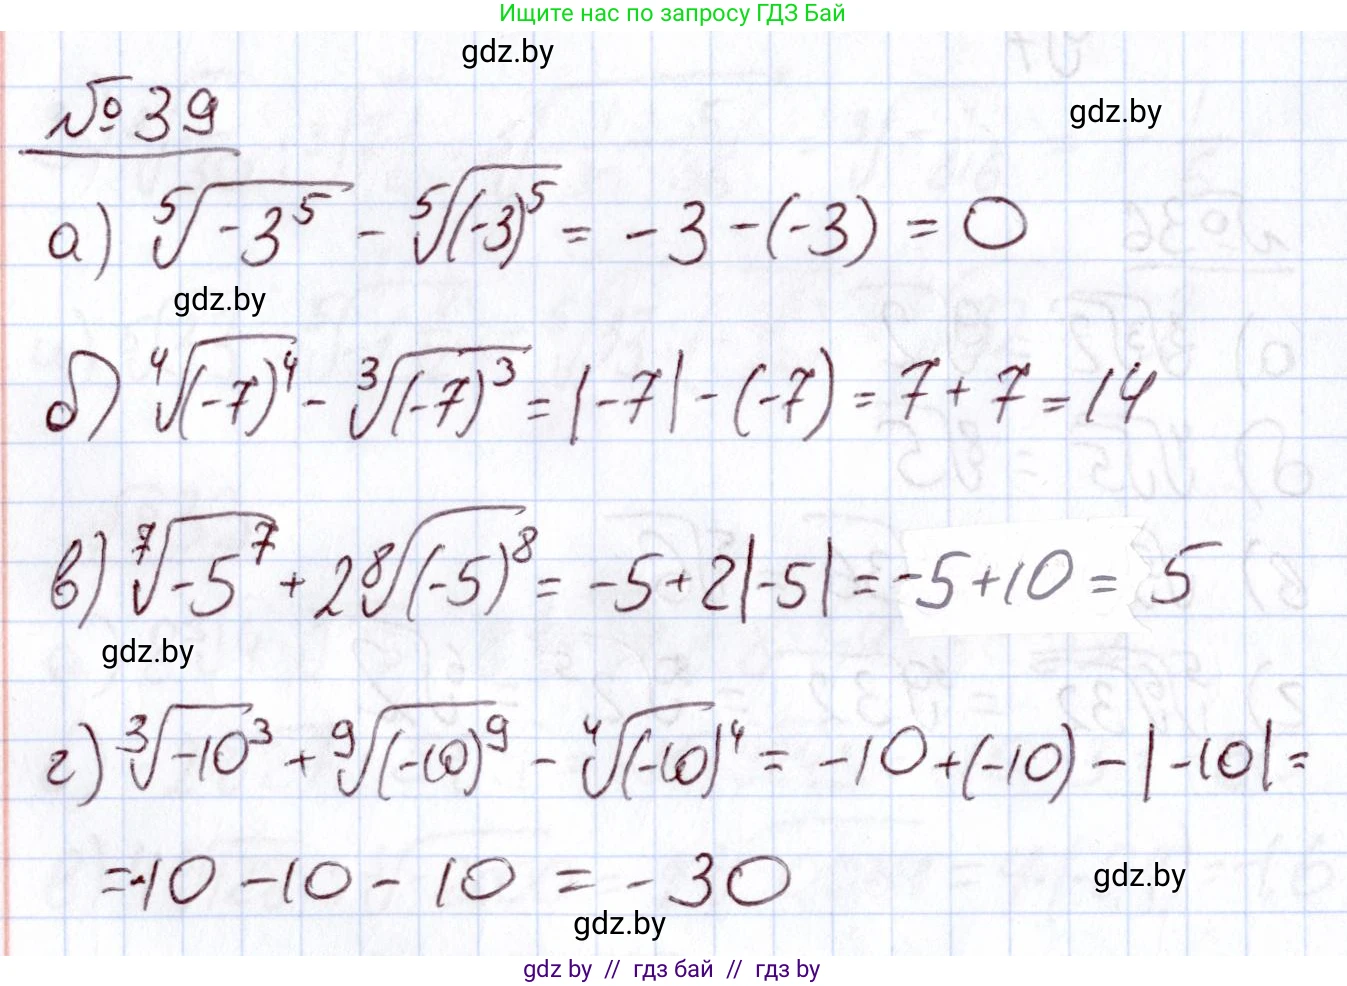 Ищите нас по запросу ГДЗ Бай
gdz.by
№ 39
gdz.by
а) ⁵√(-3⁵) - ⁵√((-3)⁵) = -3 - (-3) = 0
gdz.by
б) ⁴√((-7)⁴) - ³√((-7)³) = |-7| - (-7) = 7 + 7 = 14
в) ⁷√(-5⁷) + 2 ⁸√((-5)⁸) = -5 + 2|-5| = -5 + 10 = 5
gdz.by
г) ³√(-10³) + ⁹√((-10)⁹) - ⁴√((-10)⁴) = -10 + (-10) - |-10| =
= -10 - 10 - 10 = -30
gdz.by
gdz.by
gdz by // гдз бай // гдз by